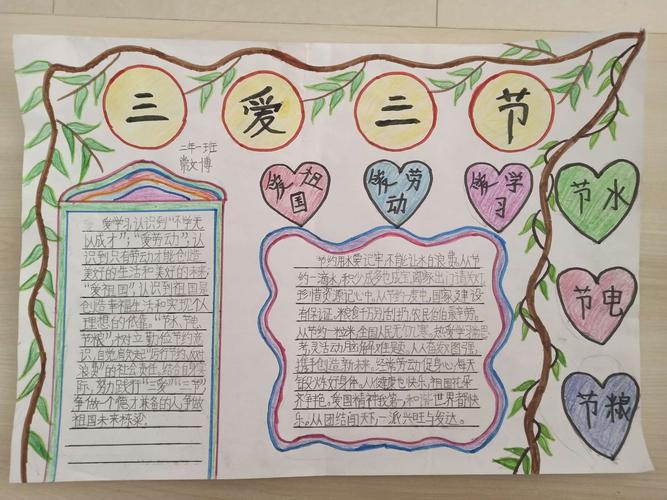 三爱三节
二年一班
常文博
爱祖国
爱劳动
爱学习
节水
节电
节粮
爱学习,认识到“不学无
以成才”;“爱劳动”,认
识到只有劳动才能创造
美好的生活和美好的未来;
“爱祖国”,认识到祖国是
创造幸福生活和实现个人
理想的依靠。“节水、节电、
节粮”,树立勤俭节约意
识,自觉肩负起“厉行节约、反对
浪费”的社会责任。结合自身实
际,努力践行“三爱”“三节”,
争做一个德才兼备的人,争做
祖国未来栋梁。
节约用水要记牢,不能让水白浪费。从节
约一滴水,积少成多也成宝,阖家出门请关灯,
珍惜资源记心中。从节约一度电,国家建设
有保证。粮食千万别扔,农民伯伯最辛劳。
从节约一粒米,全国人民无饥寒。热爱学习勤思
考,灵活动脑解难题。人人奋发图强,
携手创造新未来。经常劳动促身心,每天
锻炼好身体。从健康也快乐,祖国花朵
齐争艳。爱国精神我第一,和谐世界都快
乐。从团结闻天下,一派兴旺与发达。